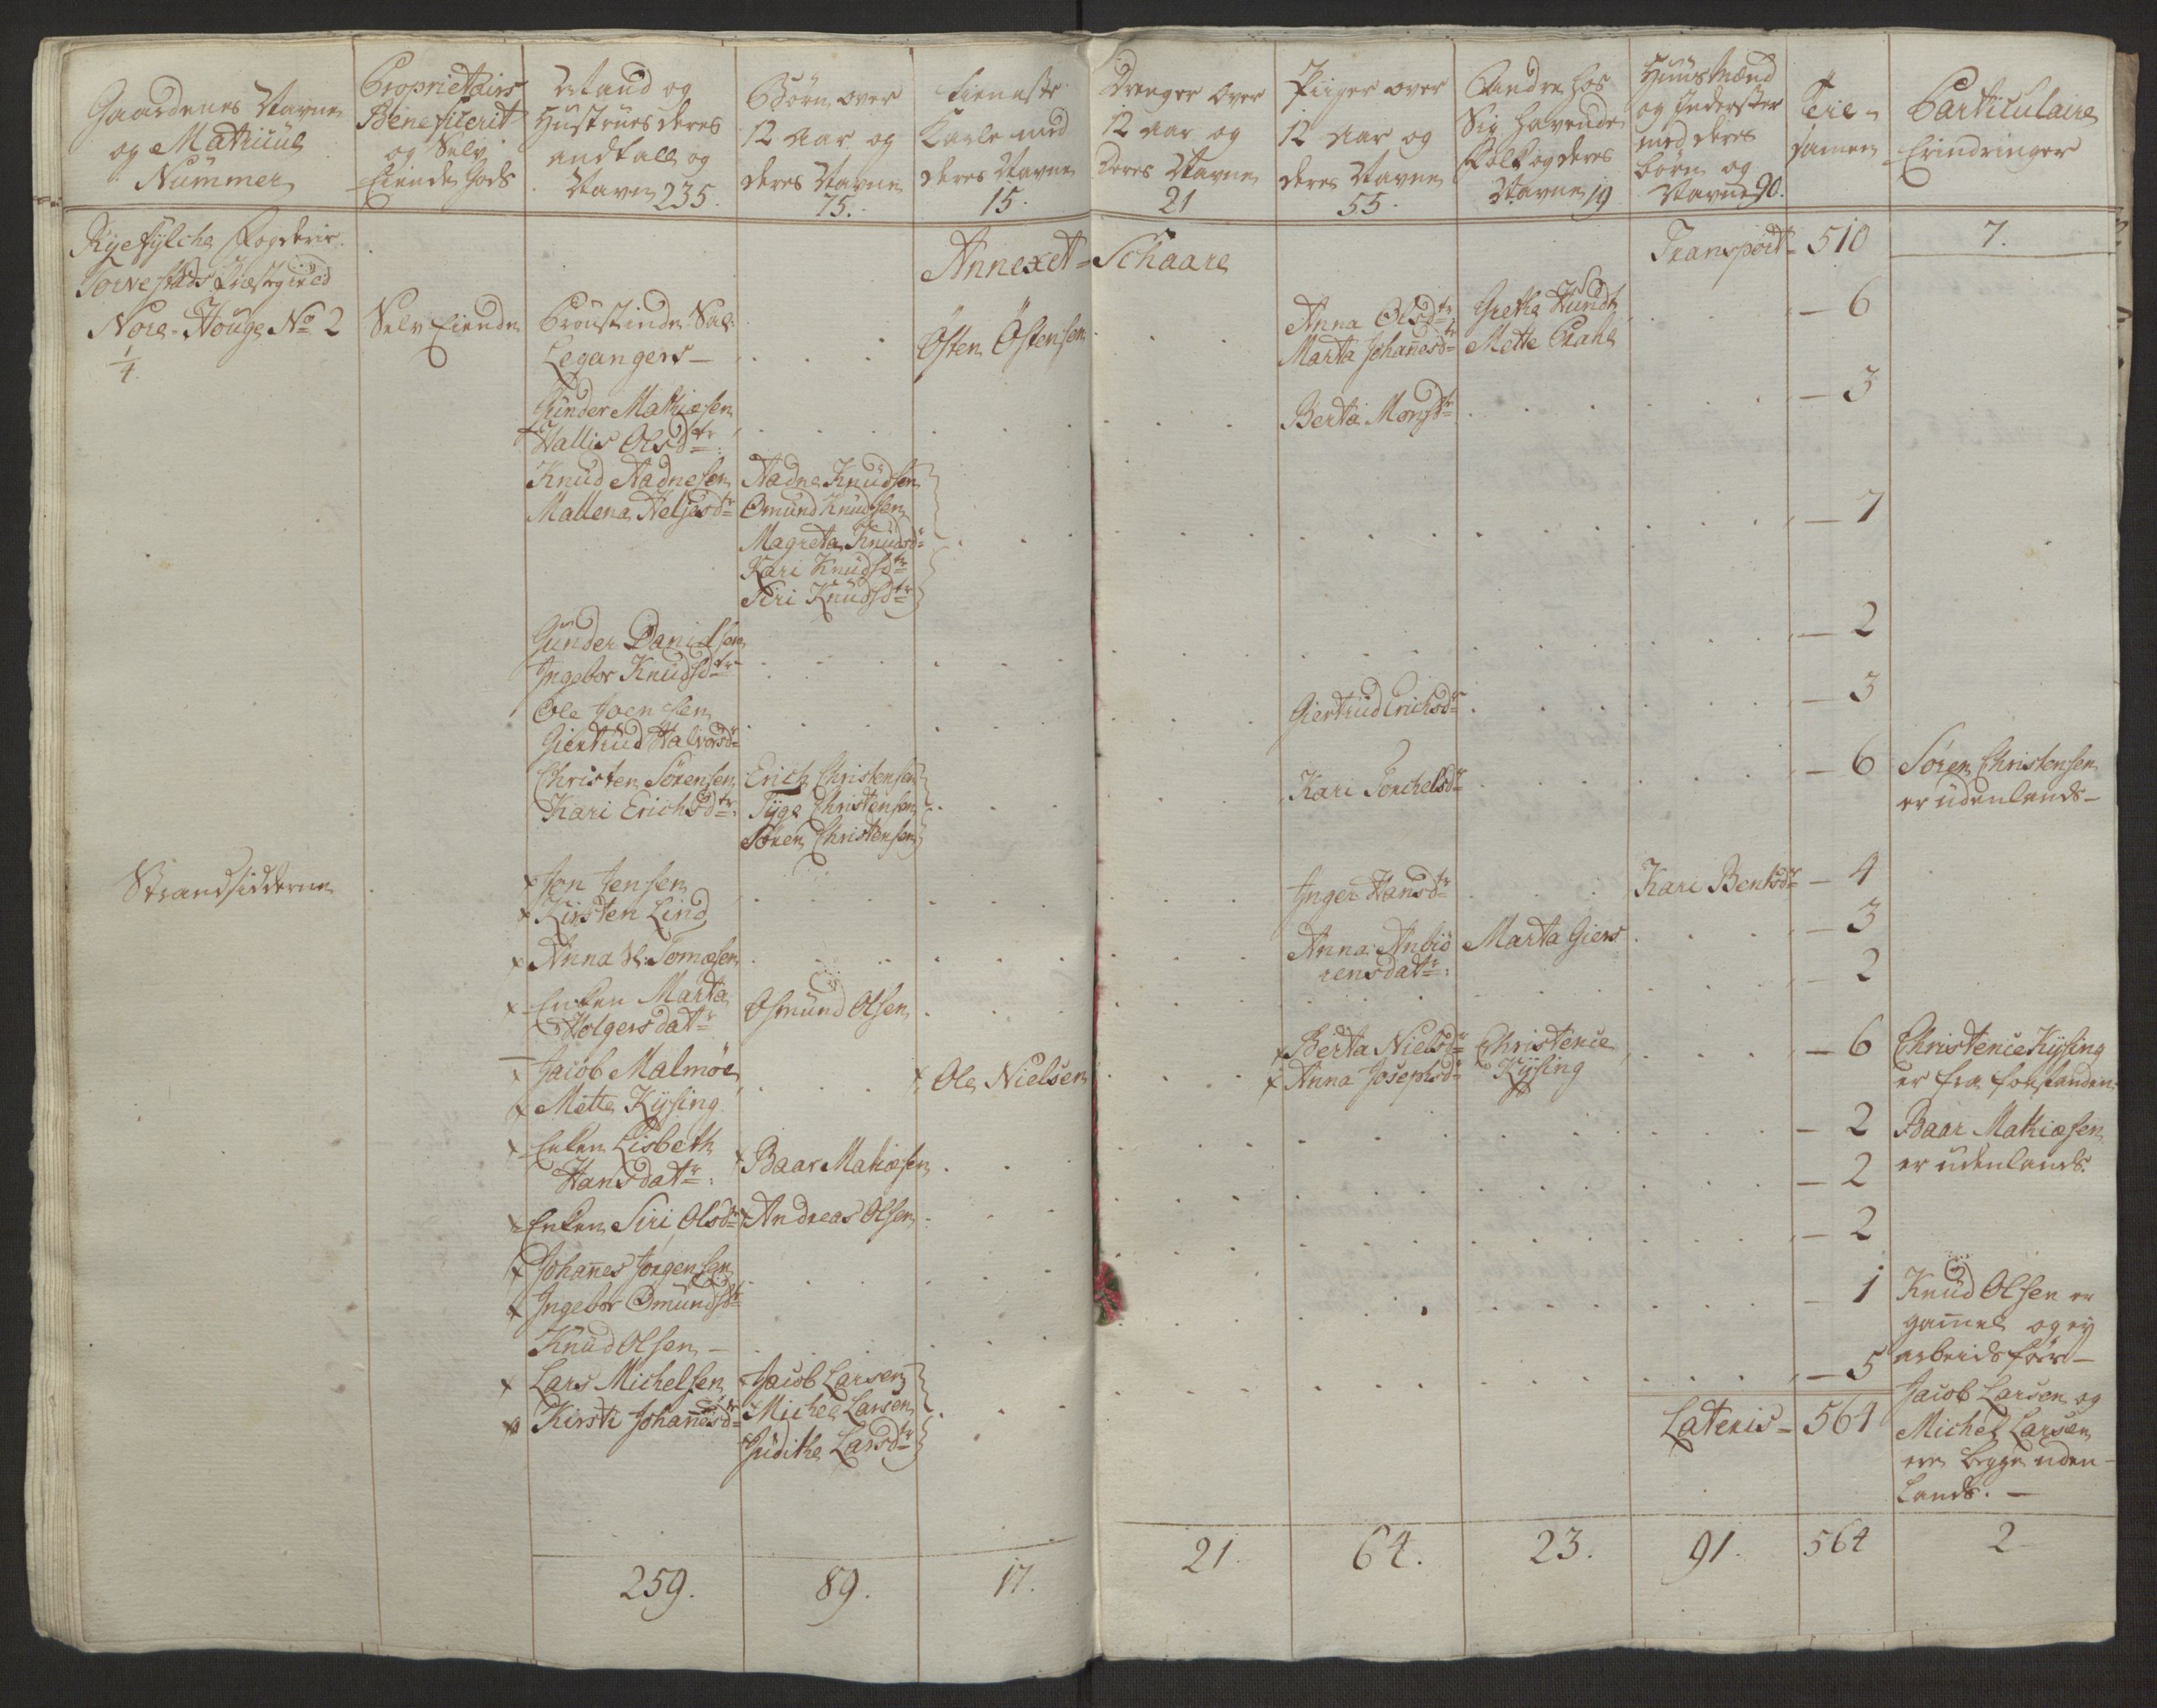 Gaardenes Navne
og Matricul
Nummer
Proprietairs
Beneficerit
og Selv
Eiende Gods
Mand og
Hustrues deres
andtall og
Navn 235.
Børn over
12 Aar og
deres Navne
75.
Tieneste
Karle med
deres Navne
15.
Drenger over
12 Aar og
deres Navne
21
Piiger over
12 Aar og
deres Navne
55.
Andre hos
Sig havende
Folk og deres
Navne 19
Huusmænd
og Inderster
med deres
børn og
Navne 90.
Sammen
Particulaire
Erindringer
Ryefylche Fogderie
Torvestads Præstegield
Annexet = Schaare
Transport - 510
7.
Nore-Houge No 2
1/4
Selv Eiende
Proustinde Sal:
Legangers -
Østen Østensen
Anna Olsdtr
Marta Johannesdtr
Gretha Hundt
Mette Prahl
- 6
Gunder Mathiesen
Wallis Olsdtr
Berta Monsdtr
- 3
Knud Aadnesen
Mallena Heljesdtr
Aadne Knudsen
Omund Knudsen
Magreta Knudsdr
Kari Knudsdtr
Siri Knudsdtr
- 7
Gunder Danielsen
Ingebor Knudsdtr
- 2
Ole Joensen
Giertrud Halvorsdr
Giertrud Erichsdr
- 3
Christen Sørensen
Kari Erichsdtr
Erich Christensen
Tyge Christensen
Søren Christensen
Kari Torchelsdr
- 6
Søren Christensen
er udenlands -
Strandsidderne
Jon Jensen
Kirsten Lind
Inger Hansdtr
Kari Bentsdr
- 4
Anna Sl: Tomæsen
Anna Anbiö
rensdatr:
Marta Giers
- 3
Enken Marta
Holgersdatr
Osmund Olsen
- 2
Jacob Malmøe
Mette Kysing
Ole Nielsen
Berta Nielsdr
Anna Josephsdr
Christence
Kysing
- 6
Christence Kysing
er fra forstanden
Enken Lisbeth
Hansdatr:
Baar Mathiesen
- 2
Baar Mathiesen
er udenlands.
Enken Siri Olsdr
Andreas Olsen
- 2
Johannes Jørgensen
Ingebor Omundsdtr
- 2
Knud Olsen -
- 1
Knud Olsen er
gammel og ey
arbeidsfør -
Lars Michelsen
Kirsti Johannesdtr
Jacob Larsen
Michel Larsen
Judithe Larsdtr
- 5
Jacob Larsen og
Michel Larsen
ere begge uden-
Lands. -
Lateris - 564
259.
89.
17.
21.
64.
23.
91.
564
2